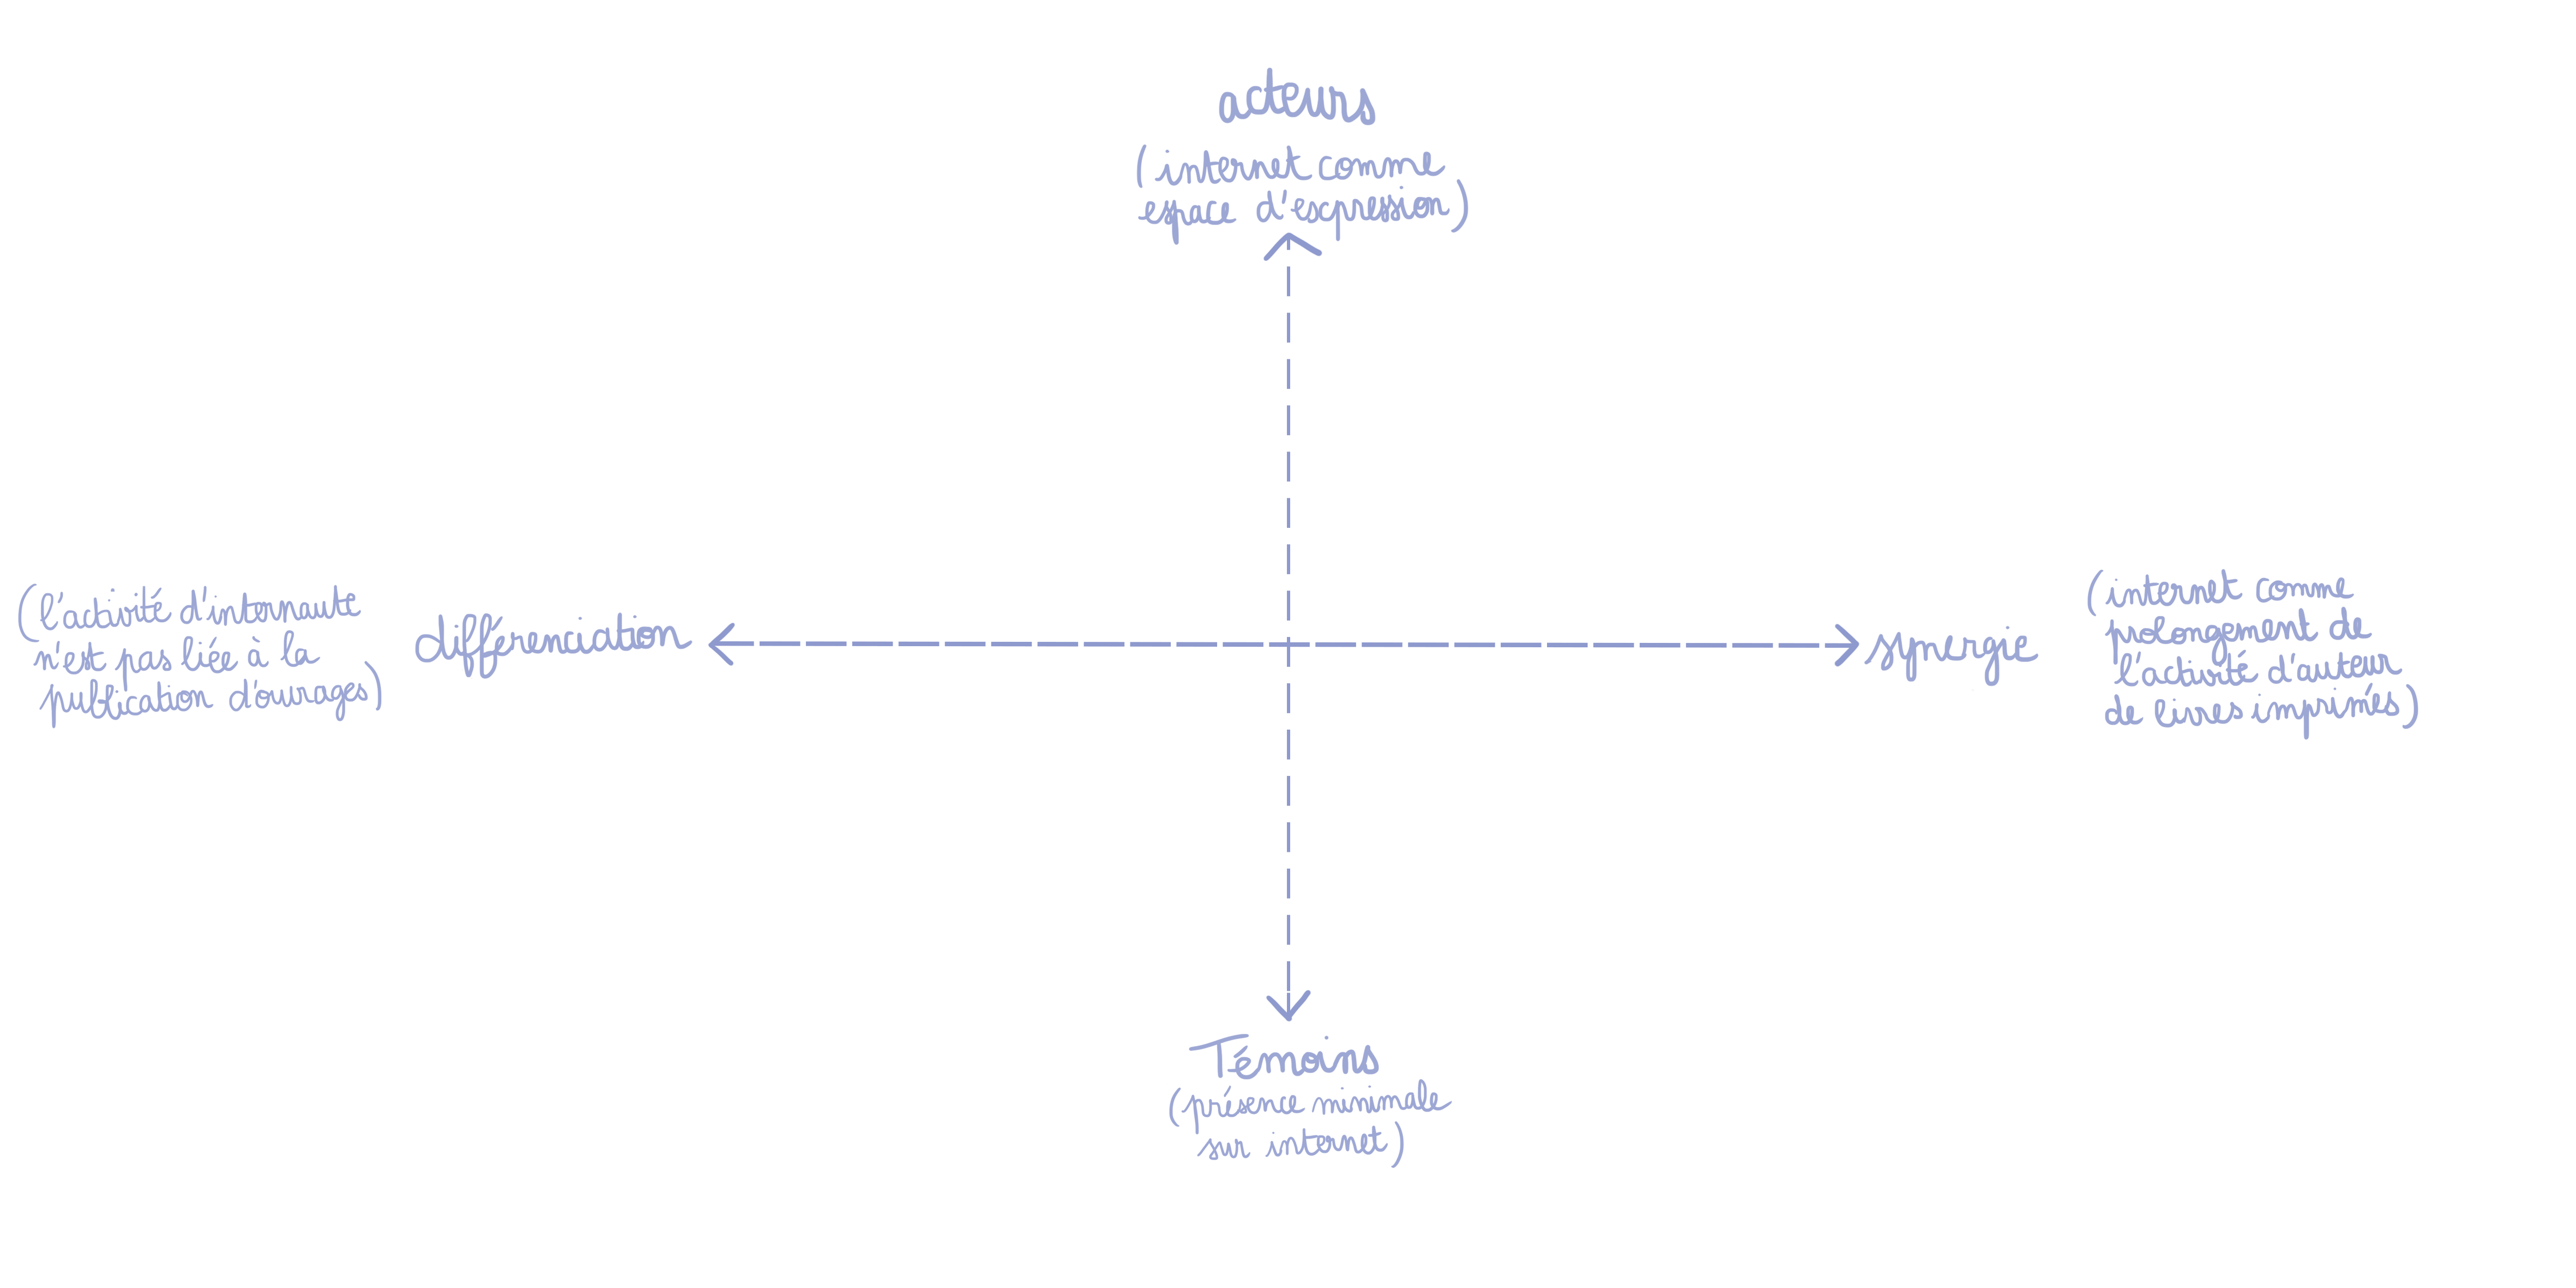 acteurs
(internet comme
espace d'expression)
(l'activité d'internaute
n'est pas liée à la
publication d'ouvrages)
différenciation
synergie
(internet comme
prolongement de
l'activité d'auteur
de livres imprimés)
Témoins
(présence minimale
sur internet)